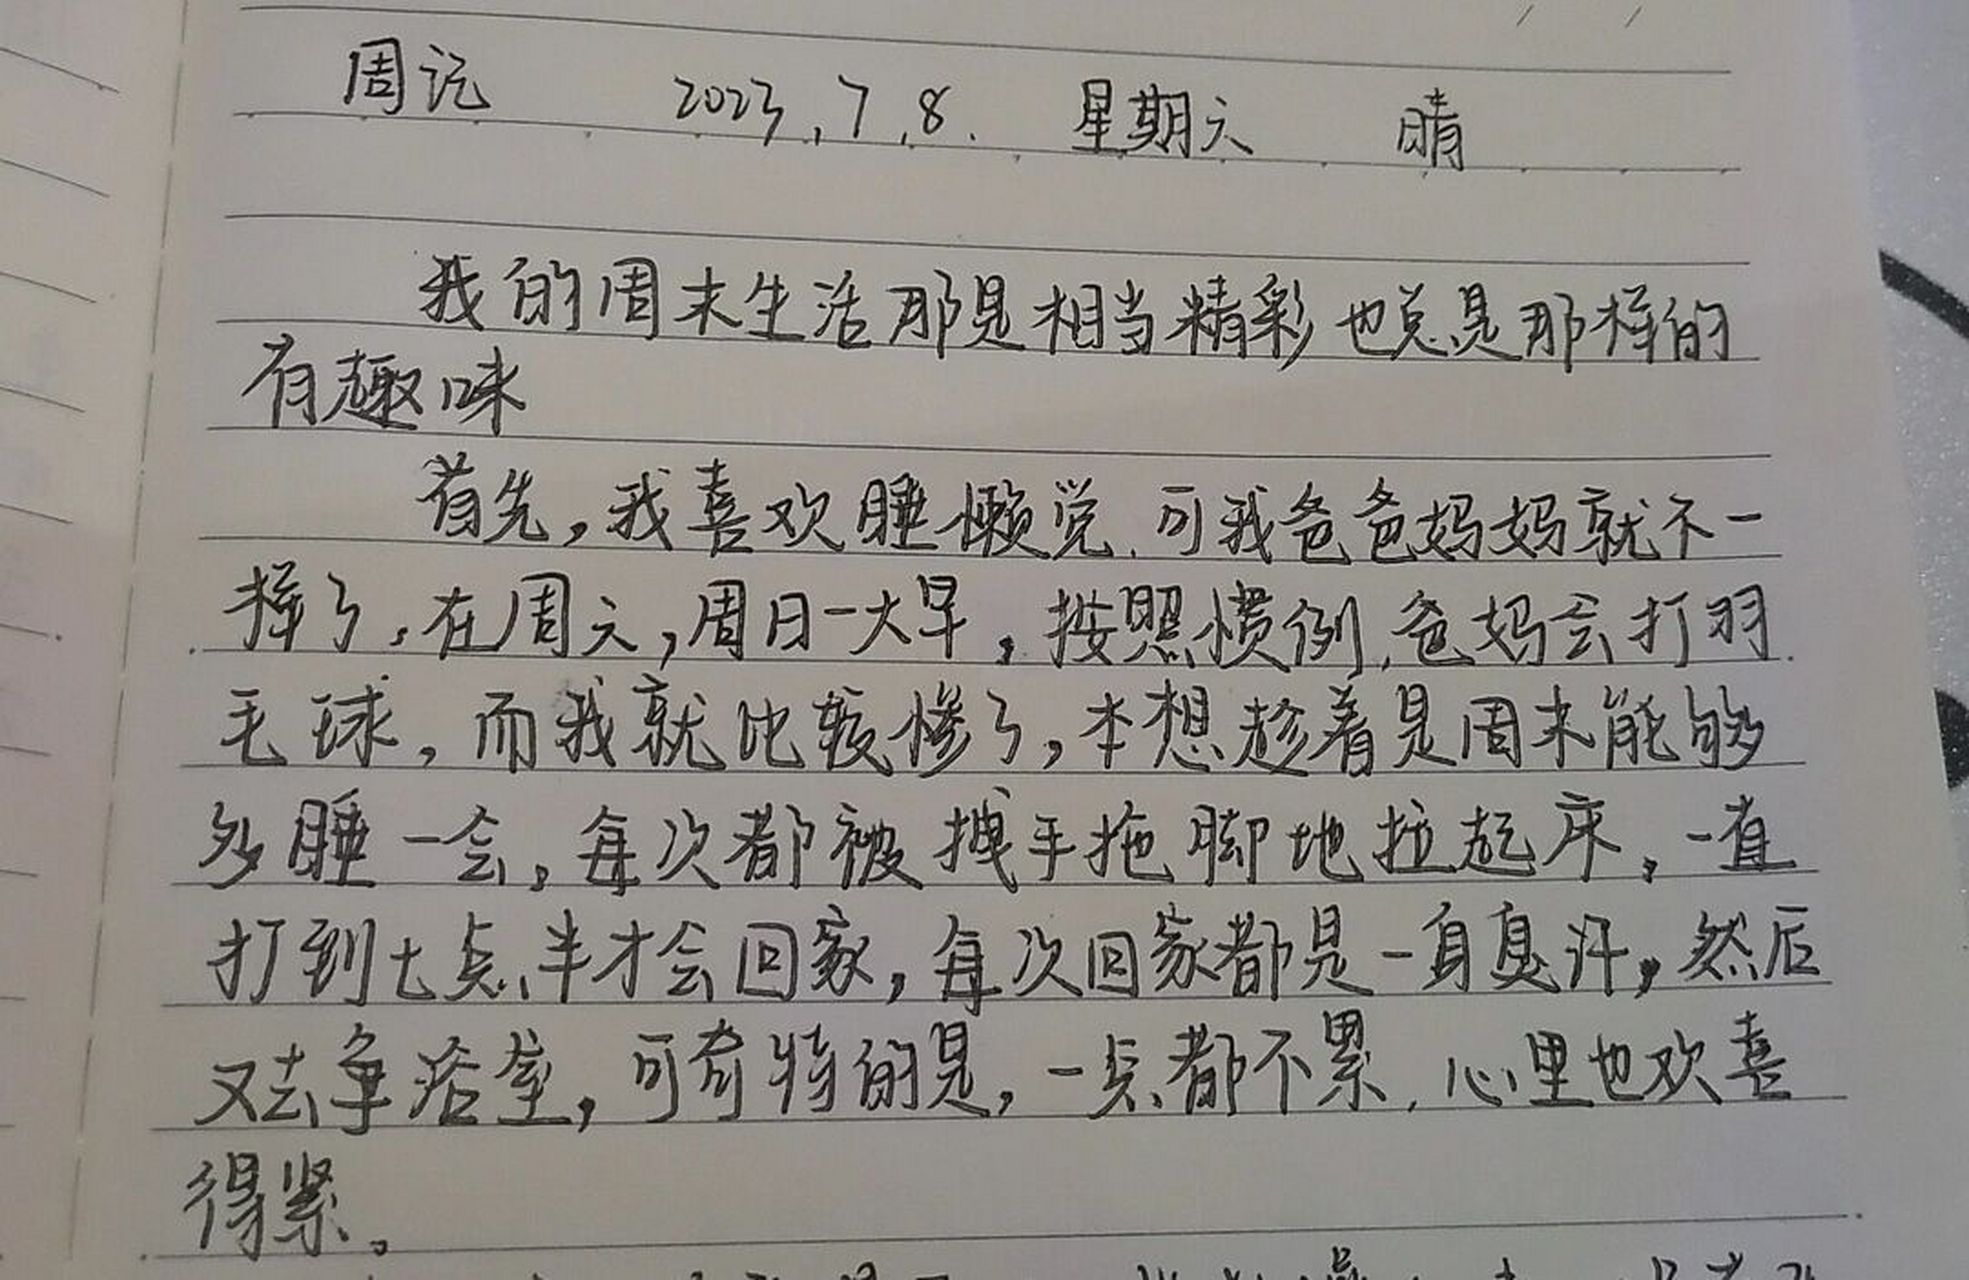 周记 2023.7.8. 星期六 晴
我的周末生活那是相当精彩也总是那样的
有趣味
首先，我喜欢睡懒觉，可我爸爸妈妈就不一
样了，在周六，周日一大早，按照惯例，爸妈会打羽
毛球，而我就比较惨了，本想趁着是周末能够
多睡一会，每次都被拽手拖脚地拉起床，一直
打到七点半才会回家，每次回家都是一身臭汗，然后
又去争浴室，可奇特的是，一点都不累，心里也欢喜
得紧。